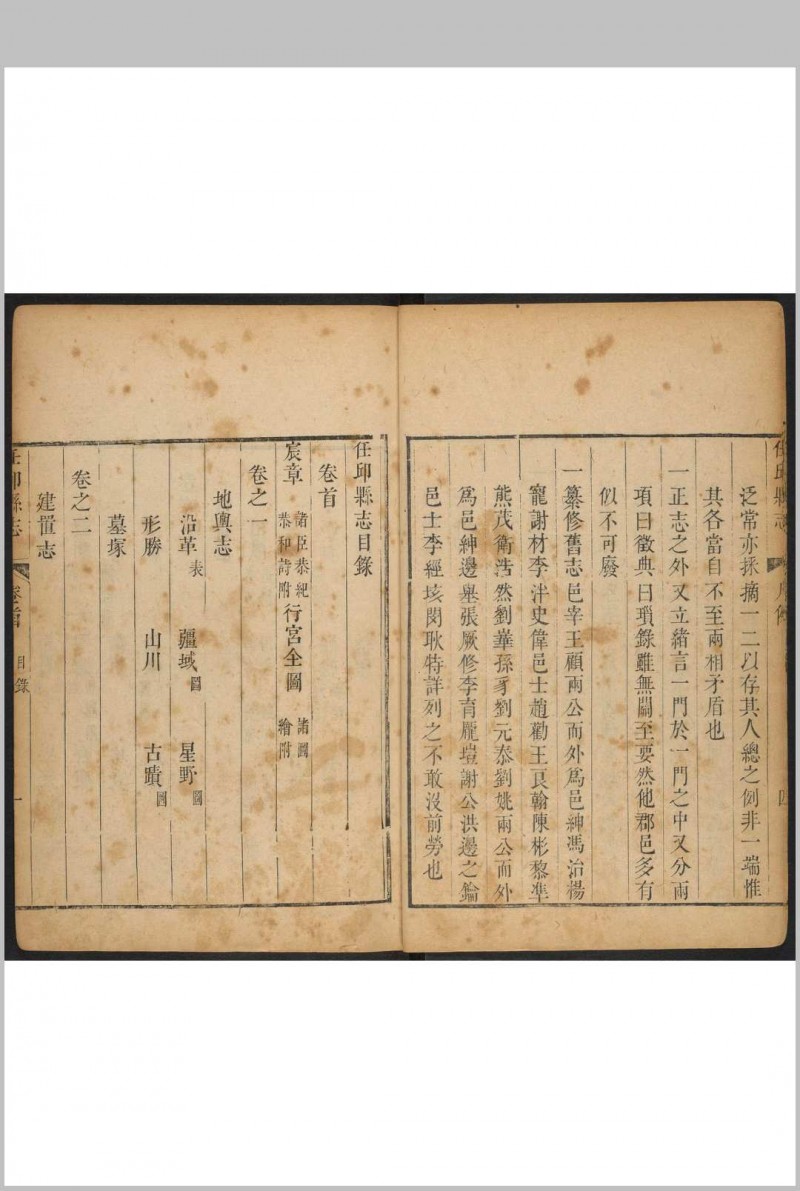 任邱縣志
泛常亦採摘一二以存其人總之例非一端惟
其各當自不至兩相矛盾也
一正志之外又立緒言一門於一門之中又分兩
項曰徵典曰瑣錄雖無關至要然他郡邑多有
似不可廢
一纂修舊志邑宰王顧兩公而外爲邑紳馮治楊
寵謝材李泮史偉邑士趙勸王良翰陳彬黎準
熊茂衛浩然劉華孫豸劉元泰劉姚兩公而外
爲邑紳邊舉張厥修李育龐塏謝公洪邊之鑰
邑士李經垓閔耿特詳列之不敢沒前勞也
任邱縣志目錄
卷首
宸章 諸臣恭紀恭和詩附 行宮全圖 諸圖繪附
卷之一
地輿志
沿革表 疆域圖 星野圖
形勝 山川 古蹟圖
墓塚
卷之二
建置志
任邱縣志 卷首 目錄 一